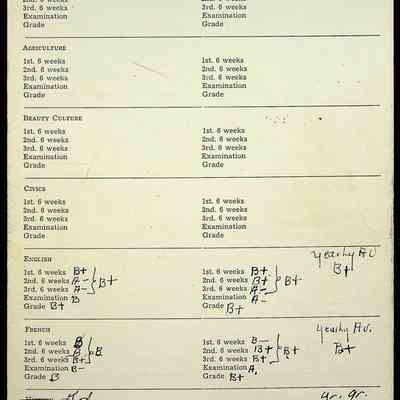 3rd. 6 weeks 3rd. 6 weeks
Examination Examination
Grade Grade
AGRICULTURE
1st. 6 weeks 1st. 6 weeks
2nd. 6 weeks 2nd. 6 weeks
3rd. 6 weeks 3rd. 6 weeks
Examination Examination
Grade Grade
BEAUTY CULTURE
1st. 6 weeks 1st. 6 weeks
2nd. 6 weeks 2nd. 6 weeks
3rd. 6 weeks 3rd. 6 weeks
Examination Examination
Grade Grade
CIVICS
1st. 6 weeks 1st. 6 weeks
2nd. 6 weeks 2nd. 6 weeks
3rd. 6 weeks 3rd. 6 weeks
Examination Examination
Grade Grade
ENGLISH yearly Av
B+
1st. 6 weeks B+ 1st. 6 weeks B+
2nd. 6 weeks A- B+ 2nd. 6 weeks B+ B+
3rd. 6 weeks A- 3rd. 6 weeks A-
Examination B Examination A-
Grade B+ Grade B+
FRENCH yearly Av.
B+
1st. 6 weeks B 1st. 6 weeks B-
2nd. 6 weeks B B 2nd. 6 weeks B+ B+
3rd. 6 weeks B+ 3rd. 6 weeks B+
Examination B- Examination A.
Grade B Grade B+
yr. gr.